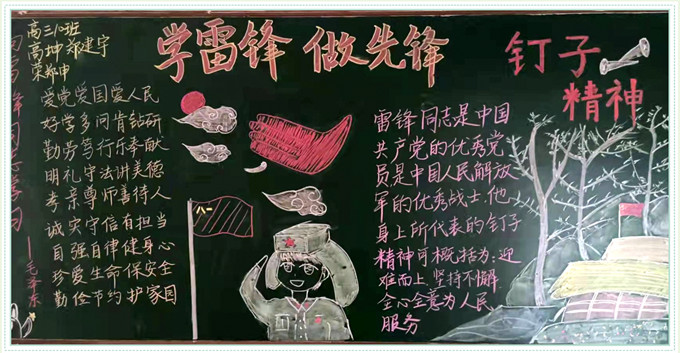 向雷锋同志学习
——毛泽东
高三10班
高坤 郑建宇
荣郑申
学雷锋 做先锋
爱党爱国爱人民
好学多问肯钻研
勤劳笃行乐奉献
明礼守法讲美德
孝亲尊师善待人
诚实守信有担当
自强自律健身心
珍爱生命保安全
勤俭节约护家园
八一
钉子
精神
雷锋同志是中国
共产党的优秀党
员是中国人民解放
军的优秀战士,他
身上所代表的钉子
精神可概括为:迎
难而上,坚持不懈
全心全意为人民
服务